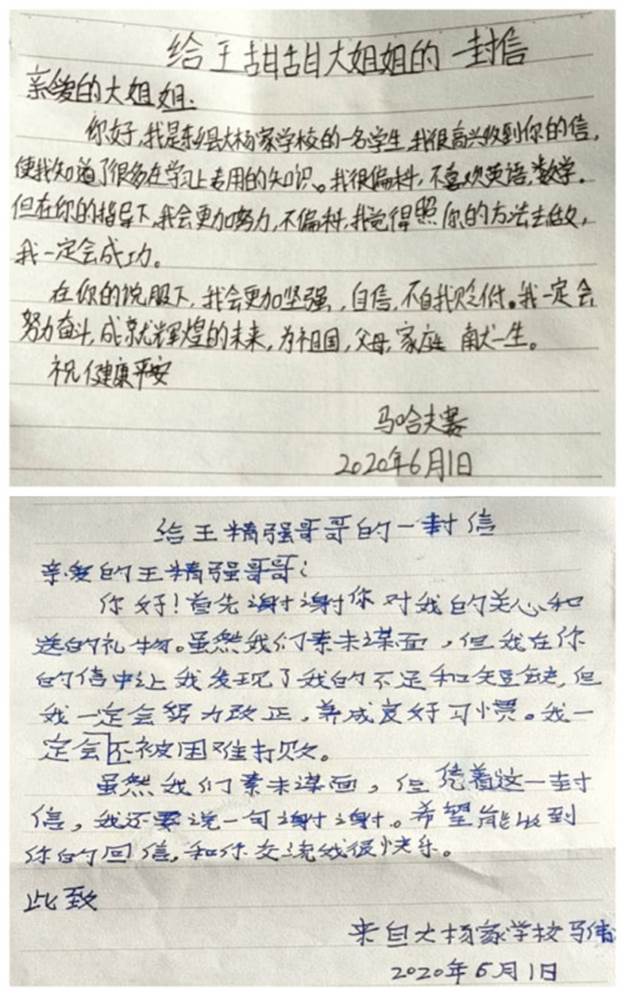 给王甜甜大姐姐的一封信
亲爱的大姐姐:
你好,我是东乡县大杨家学校的一名学生,我很高兴收到你的信,
使我知道了很多在学习上专用的知识。我很偏科,不喜欢英语,数学.
但在你的指导下,我会更加努力,不偏科,我觉得照你的方法去做,
我一定会成功。
在你的说服下,我会更加坚强,自信,不自我贬低。我一定会
努力奋斗,成就辉煌的未来,为祖国,父母,家庭 献一生。
祝健康平安
马哈夫
2020年6月1日
给王精强哥哥的一封信
亲爱的王精强哥哥:
你好!首先谢谢你对我的关心和
送的礼物。虽然我们素未谋面,但我在你
的信中让我发现了我的不足和短缺,但
我一定会努力改正,养成良好习惯。我一
定会不被困难打败。
虽然我们素未谋面,但凭着这一封
信,我还要说一句谢谢。希望能收到
你的回信,和你交流我很快乐。
此致
来自大杨家学校马伟
2020年6月1日